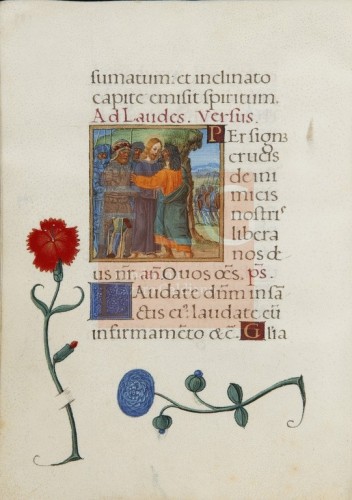 sumatum: et inclinato
capite emisit spiritum.
Ad Laudes. Versus.
PEr signũ
crucis
de ini
micis
nostris
libera
nos de
us nr̃. añ O uos oẽs. ps.
LAudate dñm in sã
ctis eiꝰ. laudate eũ
in firmamẽto &c̃. Glia